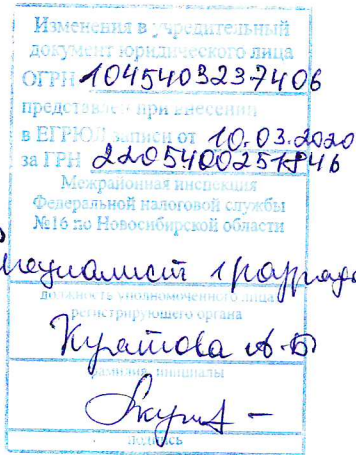 Изменения в учредительный
документ юридического лица
ОГРН 1045403237406
представлен при внесении
в ЕГРЮЛ записи от 10.03.2020
за ГРН 2205400251846
Межрайонная инспекция
Федеральной налоговой службы
№16 по Новосибирской области
Специалист 1 разряда
должность уполномоченного лица
регистрирующего органа
А.Б
фамилия, инициалы
подпись